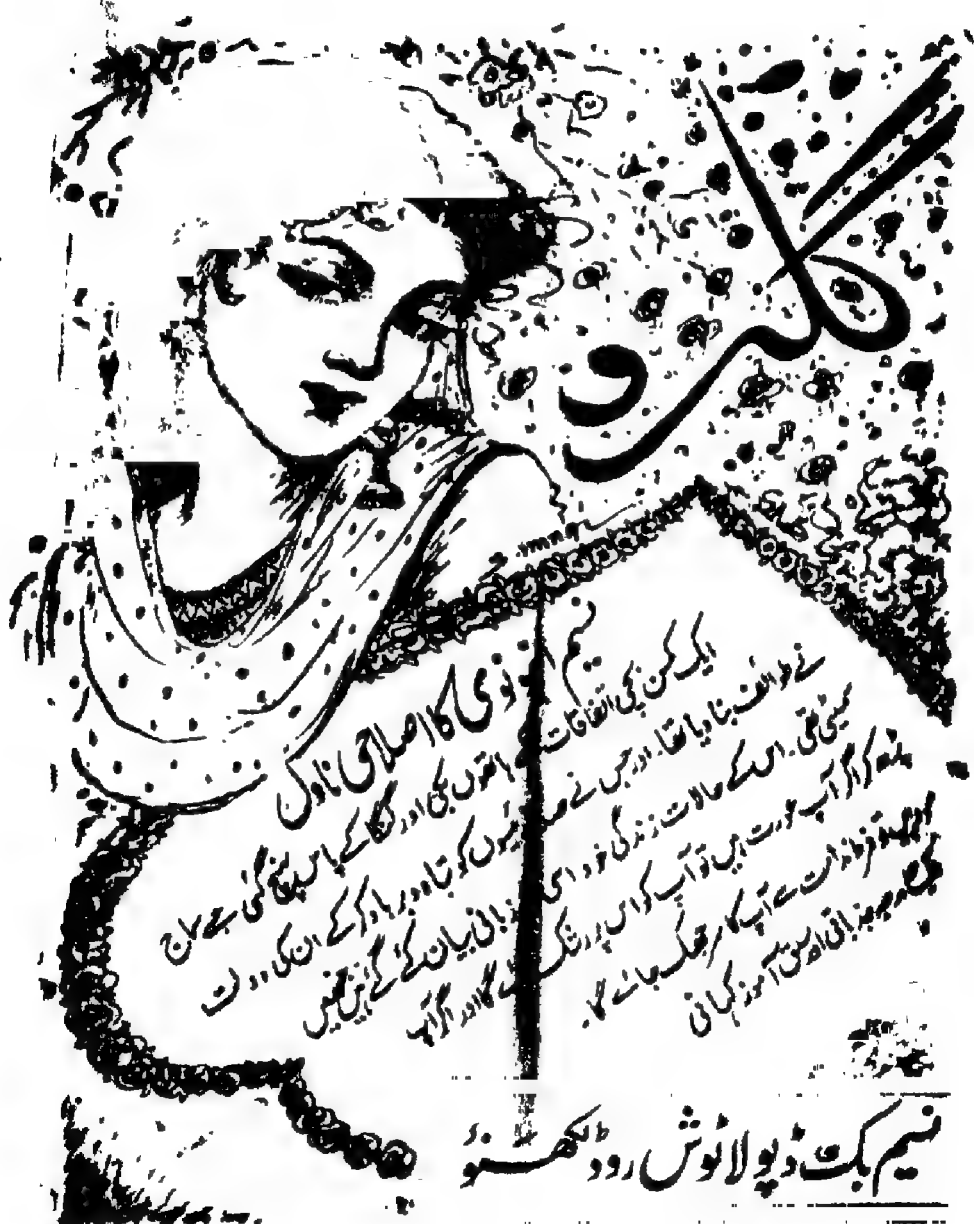 گلرو
نسیم انہونوی کا اصلاحی ناول
ایک کمسن بچی اتفاقات کے ہاتھوں بکی اور گنگا کے پاس پہنچ گئی جسے سماج
نے طوائف بنا دیا تھا۔ اور جس نے رئیسوں کو تباہ و برباد کر کے ان کی دولت
سمیٹی تھی۔ اس کے حالات زندگی خود اسی زبانی بیان کئے گئے ہیں جنہیں
پڑھ کر اگر آپ عورت ہیں تو آپ کو اس پر رشک آئے گا اور اگر آپ
تو فرط ندامت سے آپ کا سر جھک جائے گا۔
جذباتی اور سبق آموز کہانی
نسیم بک ڈپو لاٹوش روڈ لکھنؤ